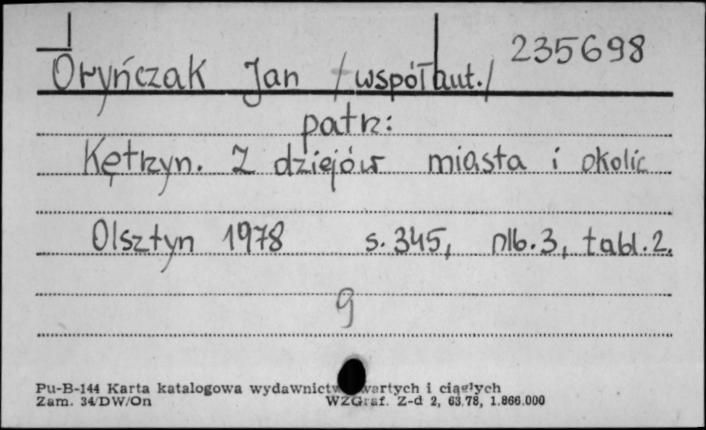 235698
Oryńczak Jan /współaut./
patrz:
Kętrzyn. Z dziejów miasta i okolic
Olsztyn 1978 s. 345, nlb. 3, tabl. 2.
9
Pu-B-144 Karta katalogowa wydawnictw zwartych i ciągłych
Zam. 34/DW/On WZGraf. Z-d 2, 63.78, 1.866.000